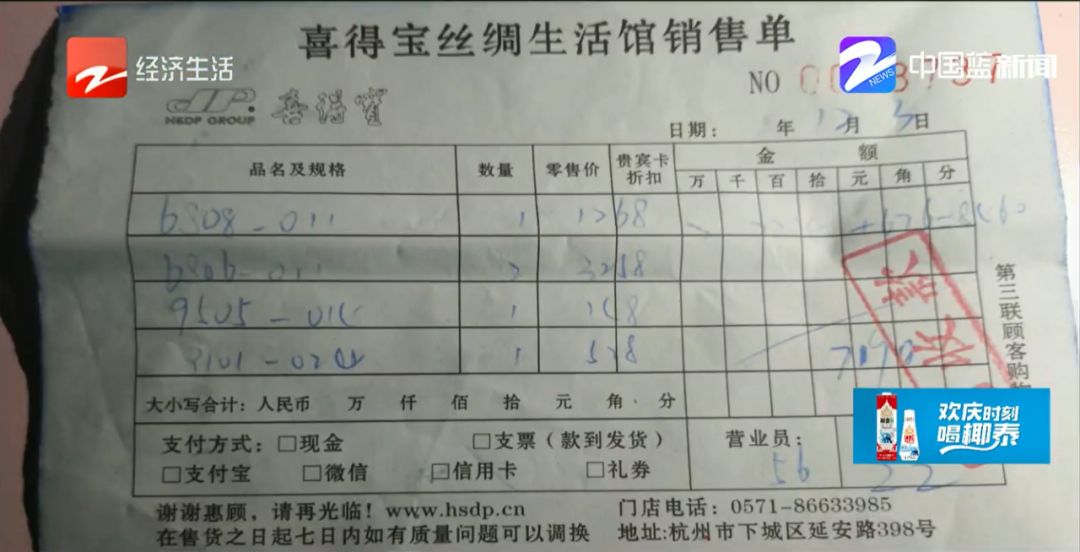 喜得宝丝绸生活馆销售单
经济生活
NEWS 中国蓝新闻
NO
HSDP GROUP 喜得寶
日期: 年 12月 3日
品名及规格 数量 零售价 贵宾卡折扣 金额
万 千 百 拾 元 角 分
6808-011 1 1268
2 3258
9505-01 1 168
1 528
7190
第三联顾客购
大小写合计: 人民币 万 仟 佰 拾 元 角 分
支付方式: □现金 □支票(款到发货) 营业员:
□支付宝 □微信 □信用卡 □礼券 56 22
欢庆时刻
喝椰泰
谢谢惠顾, 请再光临! www.hsdp.cn 门店电话: 0571-86633985
在售货之日起七日内如有质量问题可以调换 地址:杭州市下城区延安路398号